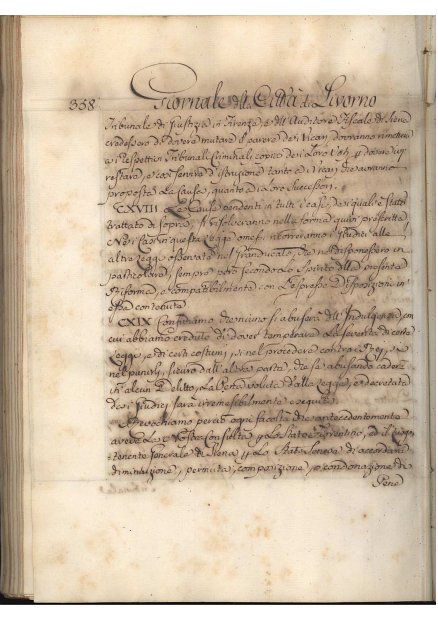 338
Giornale della Città di Livorno
Tribunale di Giustizia in Firenze, e dell' Auditore Fiscale di Siena
credessero di dovere mutare il parere dei Vicarj dovranno rimettere
a i rispettivi Tribunali Criminali copia dei Loro Voti
restare, e così servirà d'istruzione tanto a i Vicarj che avranno
proposta La Causa, quanto a i Loro Successori.
CXVIII Le Cause pendenti in tutti i casi, dei quali è stato
trattato di sopra, si risolveranno nella forma quivi prescritta
E Nei Casi in questa Legge omessi ricorreranno i Giudici alle
altre Leggi osservate nel Granducato, che ne disponessero in
particolare, sempre però secondo Lo Spirito della presente
Riforma, e compatibilmente con L'espresse disposizioni in
essa contenute
CXIX Confidiamo che niuno si abuserà dell'Indulgenza, con
cui abbiamo creduto di dover temperare La Severità di certe
Leggi, e di certi costumi, sì nel procedere contra i Rei,
nel punirli, sicuro dall'altra parte, che se abusando cadere
in alcun Delitto, La Pena voluta dalla Legge, e decretata
dei Giudici sarà irremissibilmente eseguita
Revochiamo perciò ogni facoltà che antecedentemente
aveva La Nostra Consulta per Lo Stato Fiorentino, ed il Luogo-
tenente Generale di Siena per Lo Stato Senese di accordare
diminuzione, permuta, composizione, o condonazione di
Pene